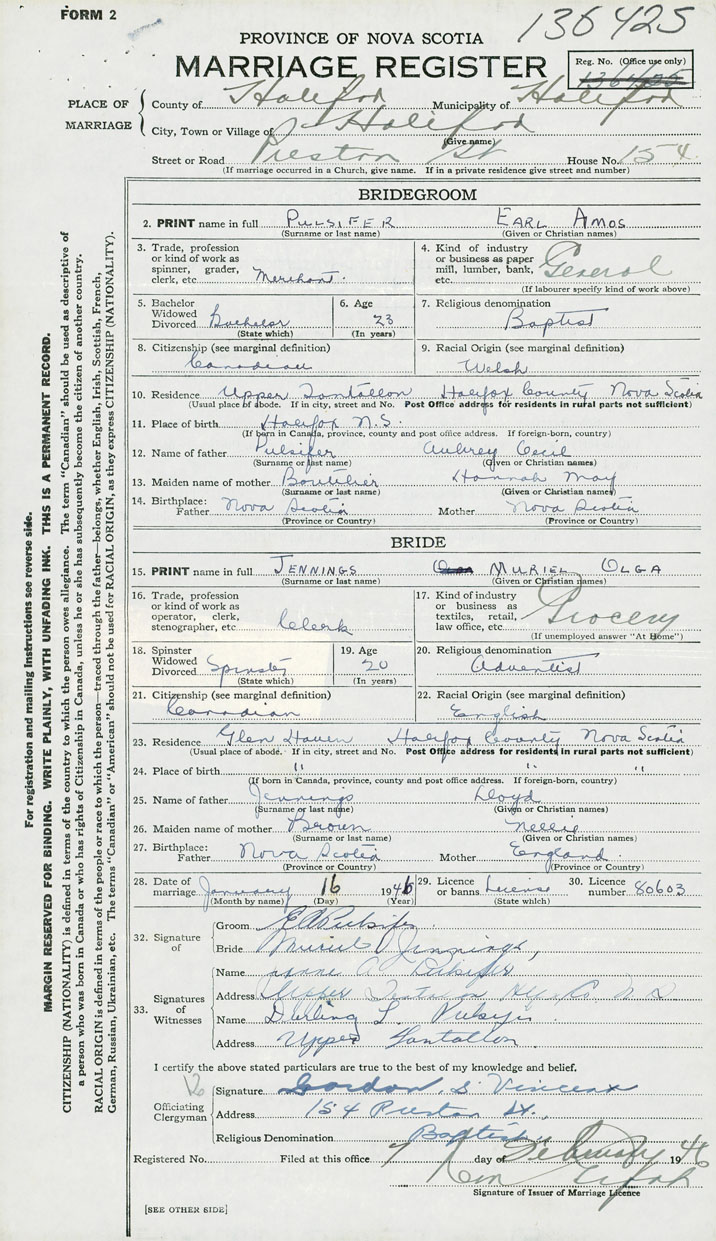 FORM 2
136425
PROVINCE OF NOVA SCOTIA
MARRIAGE REGISTER
Reg. No. (Office use only)
PLACE OF MARRIAGE
County of Halifax Municipality of Halifax
City, Town or Village of Halifax
(Give name)
Street or Road Preston St House No. 154
(If marriage occurred in a Church, give name. If in a private residence give street and number)
BRIDEGROOM
2. PRINT name in full PULSIFER EARL AMOS
(Surname or last name) (Given or Christian names)
3. Trade, profession or kind of work as spinner, grader, clerk, etc. Merchant.
4. Kind of industry or business as paper mill, lumber, bank, etc. General
(If labourer specify kind of work above)
5. Bachelor Widowed Divorced Bachelor (State which)
6. Age 23 (In years)
7. Religious denomination Baptist
8. Citizenship (see marginal definition) Canadian
9. Racial Origin (see marginal definition) Welsh
10. Residence Upper Tantallon Halifax County Nova Scotia
(Usual place of abode. If in city, street and No. Post Office address for residents in rural parts not sufficient)
11. Place of birth Halifax N.S.
(If born in Canada, province, county and post office address. If foreign-born, country)
12. Name of father Pulsifer Aubrey Cecil
(Surname or last name) (Given or Christian names)
13. Maiden name of mother Boutilier Hannah May
(Surname or last name) (Given or Christian names)
14. Birthplace: Father Nova Scotia Mother Nova Scotia
(Province or Country) (Province or Country)
BRIDE
15. PRINT name in full JENNINGS MURIEL OLGA
(Surname or last name) (Given or Christian names)
16. Trade, profession or kind of work as operator, clerk, stenographer, etc Clerk
17. Kind of industry or business as textiles, retail, law office, etc. Grocery
(If unemployed answer "At Home")
18. Spinster Widowed Divorced Spinster (State which)
19. Age 20 (In years)
20. Religious denomination Adventist
21. Citizenship (see marginal definition) Canadian
22. Racial Origin (see marginal definition) English
23. Residence Glen Haven Halifax County Nova Scotia
(Usual place of abode. If in city, street and No. Post Office address for residents in rural parts not sufficient)
24. Place of birth " " "
(If born in Canada, province, county and post office address. If foreign-born, country)
25. Name of father Jennings Lloyd
(Surname or last name) (Given or Christian names)
26. Maiden name of mother Brown Nellie
(Surname or last name) (Given or Christian names)
27. Birthplace: Father Nova Scotia Mother England
(Province or Country) (Province or Country)
28. Date of marriage January 16 1946
(Month by name) (Day) (Year)
29. Licence or banns License (State which)
30. Licence number 80603
32. Signature of
Groom E A Pulsifer
Bride Muriel Jennings,
33. Signatures of Witnesses
Name A Pulsifer
Address Upper Co N S
Name Darling L. Pulsifer
Address Upper Tantallon.
I certify the above stated particulars are true to the best of my knowledge and belief.
Officiating Clergyman
Signature Gordon S Vincent
Address 154 Preston St.,
Religious Denomination Baptist
Registered No. Filed at this office 7 day of February 1946
Signature of Issuer of Marriage Licence
[SEE OTHER SIDE]
For registration and mailing instructions see reverse side.
MARGIN RESERVED FOR BINDING. WRITE PLAINLY, WITH UNFADING INK. THIS IS A PERMANENT RECORD.
CITIZENSHIP (NATIONALITY) is defined in terms of the country to which the person owes allegiance. The term "Canadian" should be used as descriptive of
a person who was born in Canada or who has rights of Citizenship in Canada, unless he or she has subsequently become the citizen of another country.
RACIAL ORIGIN is defined in terms of the people or race to which the person—traced through the father—belongs, whether English, Irish, Scottish, French,
German, Russian, Ukrainian, etc. The terms "Canadian" or "American" should not be used for RACIAL ORIGIN, as they express CITIZENSHIP (NATIONALITY).